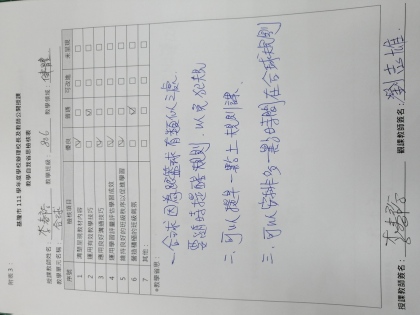 附表3：
基隆市 111 學年度學校辦理校長及教師公開授課
教學自我省思檢核表
授課教師姓名：
教學班級：806
教學領域：健體
教學單元名稱：合球
序號 檢核項目 優良 普通 可改進 未呈現
1 清楚呈現教材內容
2 運用有效教學技巧
3 應用良好溝通技巧
4 運用學習評量評估學習成效
5 維持良好的班級秩序以促進學習
6 營造積極的班級氣氛
7 其他
*教學省思：
一.合球因為跟籃球有類似之處
要適時提醒規則，以免犯規
二.可以提早一點上規則課
三.可以安排多一點時間在合球規則
授課教師簽名：
觀課教師簽名：